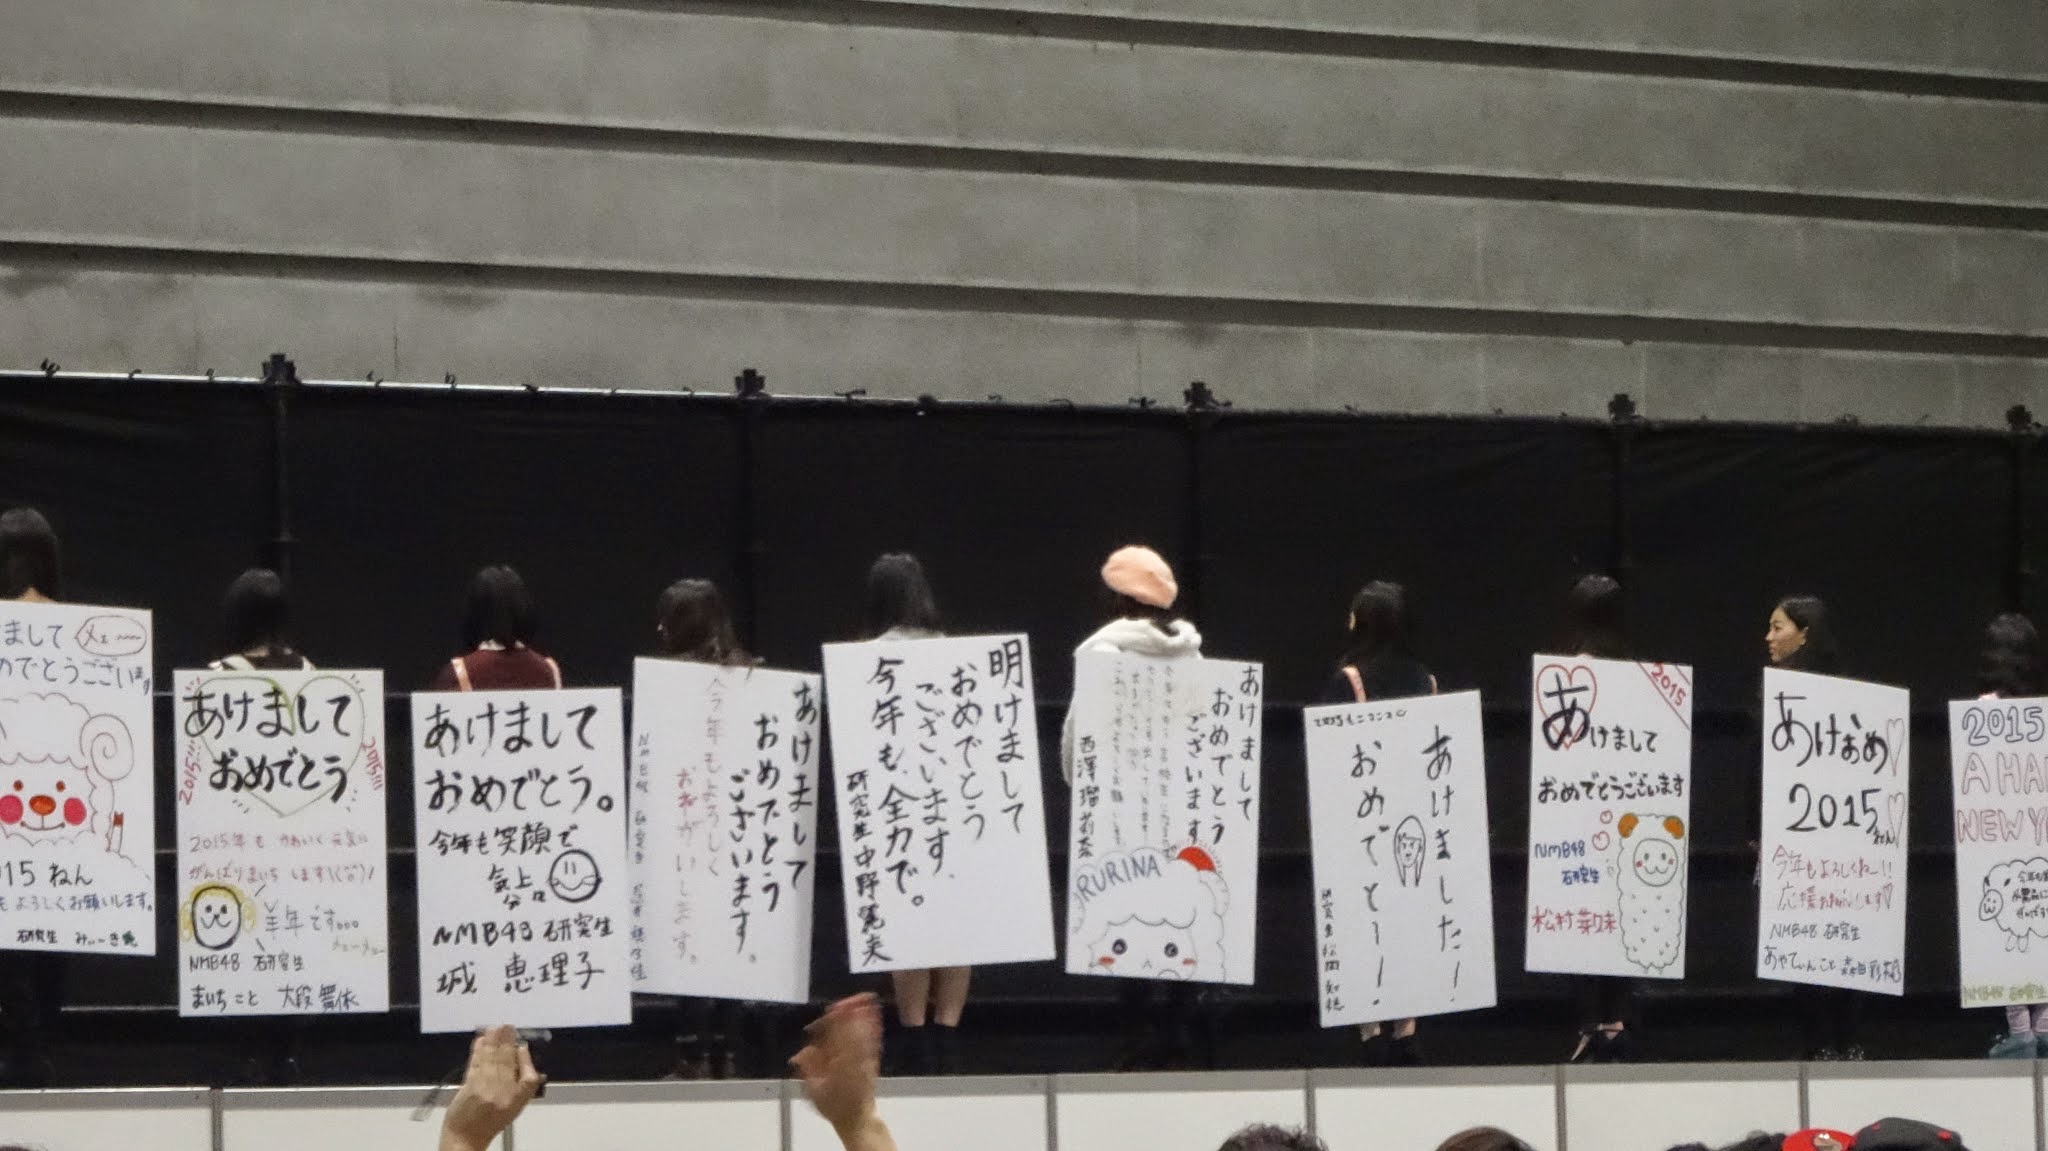 まして
メェ〜
めでとうござい
15 ねん
もよろしくお願いします。
研究生
あけまして
おめでとう
2015!!!
2015!!!
2015年も かわいく元気に
がんばりまいち します!
羊年です。。。
メェーメェー
NMB48 研究生
まいちこと 大段舞依
あけまして
おめでとう。
今年も笑顔で
NMB48 研究生
城 恵理子
あけまして
おめでとう
ございます。
今年もよろしく
おねがいします。
明けまして
おめでとう
ございます。
今年も、全力で。
研究生 中野麗来
あけまして
おめでとう
ございます
西澤瑠莉奈
RURINA
あけました!
おめでとー!
研究生 松岡知穂
2015
あけまして
おめでとうございます
NMB48
研究生
松村芽久未
あけおめ
2015ねん
今年もよろしくねー!!
応援お願いします
NMB48 研究生
あやてぃんこと 森田彩花
2015
A HA
NEW Y
NMB48 研究生